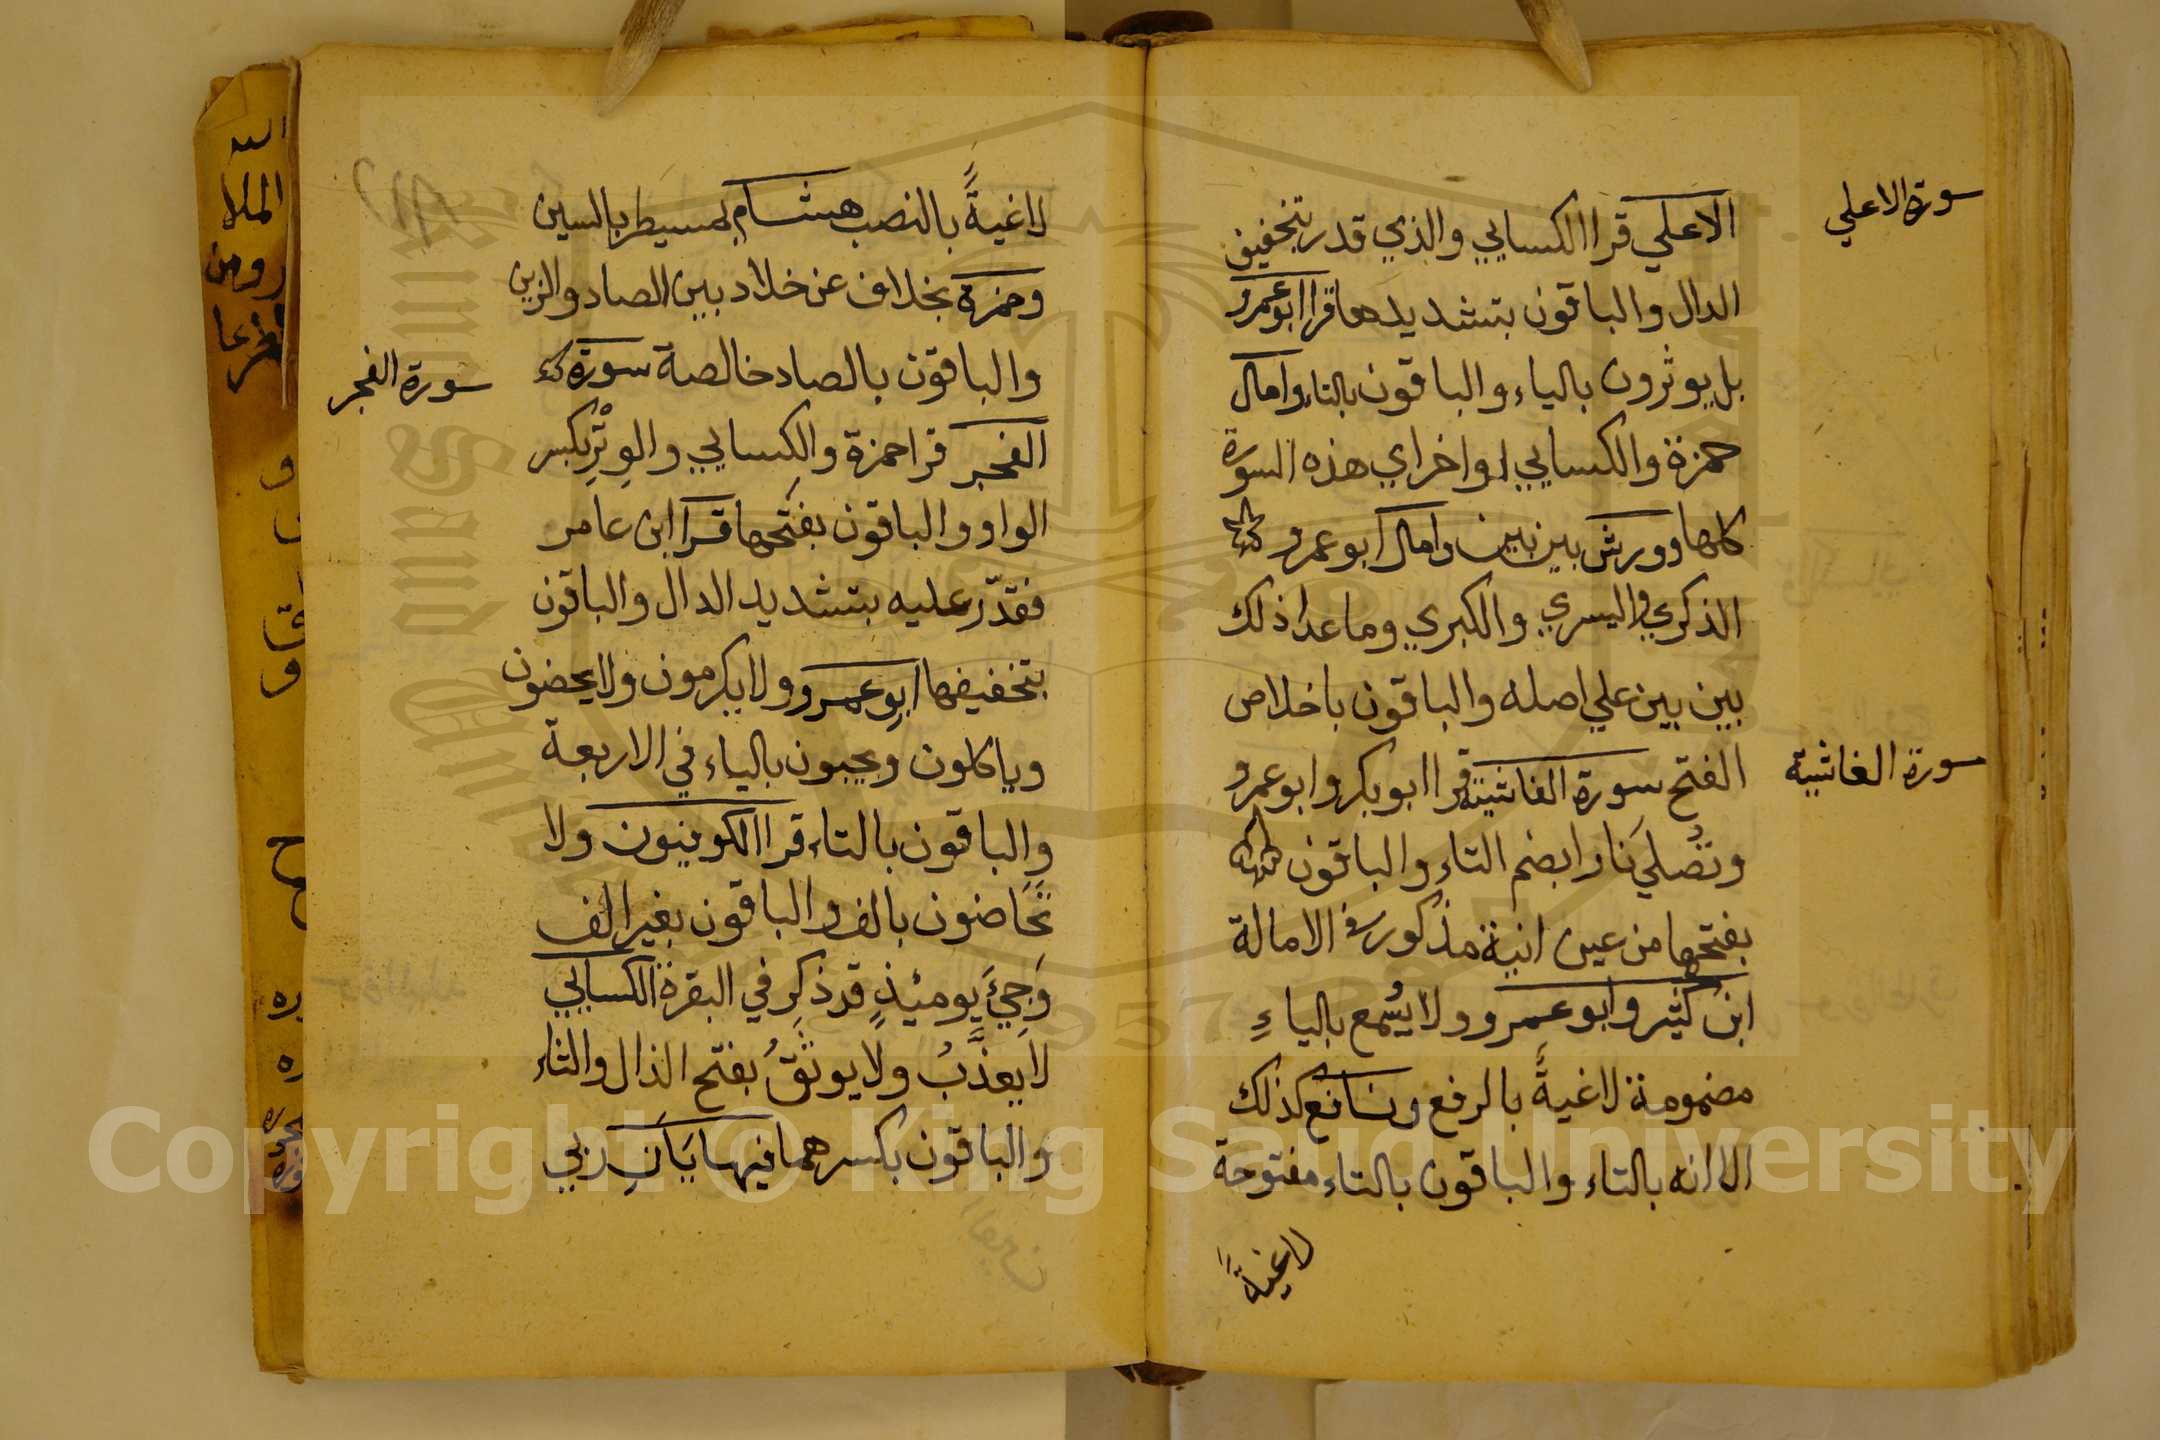 سورة الاعلي
الاعلي قرا الكسايي والذي قدر بتخفيف
الدال والباقون بتشديدها قرا ابو عمرو
بل يوثرون بالياء والباقون بالتاء وامال
حمزة والكسايي اواخر اي هذه السورة
كلها وورش بين بين وامال ابو عمرو
الذكري واليسري والكبري وما عدا ذلك
بين بين علي اصله والباقون باخلاص
سورة الغاشية
الفتح سورة الغاشية قرا ابو بكر وابو عمرو
وتُصلي نَارا بضم التاء والباقون
بفتحها من عين انية مذكور في الامالة
ابن كثير وابو عمرو ولا يُسمع بالياءِ
مضمومة لاغيةً بالرفع ونافع كذلك
الا انه بالتاء والباقون بالتاء مفتوحة
لاغيةً
لاغيةً بالنصب هشام بمسيطر بالسين
وحمزة بخلاف عن خلاد بين الصاد والزين
والباقون بالصاد خالصة سورة
سورة الفجر
الفجر قرا حمزة والكسايي والوِتْرِ بكسر
الواو والباقون بفتحها قرا ابن عامر
فقدّر عليه بتشديد الدال والباقون
بتخفيفها ابو عمرو ولا يكرمون ولا يحضون
وياكلون ويحبون بالياء في الاربعة
والباقون بالتاء قرا الكوفيون ولا
تَحَاضون بالف والباقون بغير الف
وَجِيءَ يومئذٍ قد ذكر في البقرة الكسايي
لا يعذَّبُ ولا يوثَقُ بفتح الذال والثاء
والباقون بكسرهما فيها ياآنِ ربي
الملا
ومن
Copyright © King Saud University
1957